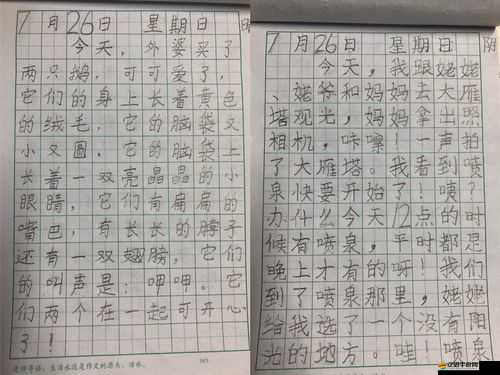 7月26日 星期日 阴
今天，外婆买了
两只鹅，可可爱了，
它们的身上长着黄色
的绒毛，它的脑袋又
小又圆，它的脑袋上
长着一双亮晶晶的小
眼睛，它们有扁扁的
嘴巴，有长长的脖子
还有一双翅膀，它们
的叫声是：呷呷。它
们两个在一起可开心
了！
7月26日 星期日 阴
今天，我跟姥姥
、姥爷和妈妈去大雁
塔观光，妈妈拿出照
相机，咔嚓！一声拍
了大雁塔。我看到喷
泉快要开始了！咦？
为什么今天12点的时
候有喷泉，平时都是
晚上才有的呀！我们
到了喷泉那里，姥姥
给我选了一个没有阳
光的地方。哇！喷泉